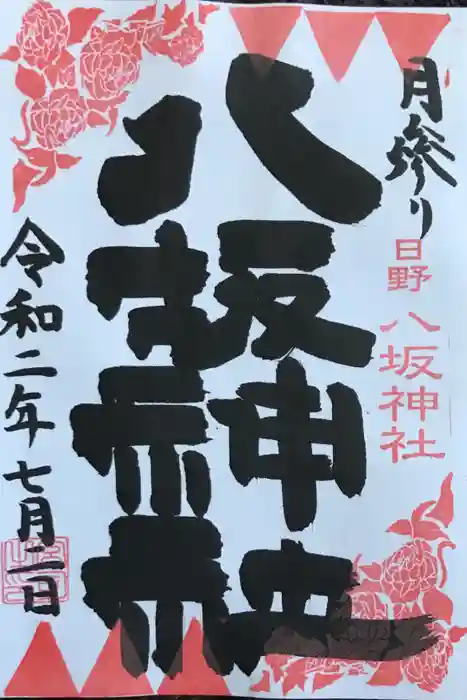 月参り
日野 八坂神社
八坂神社
令和二年七月二日